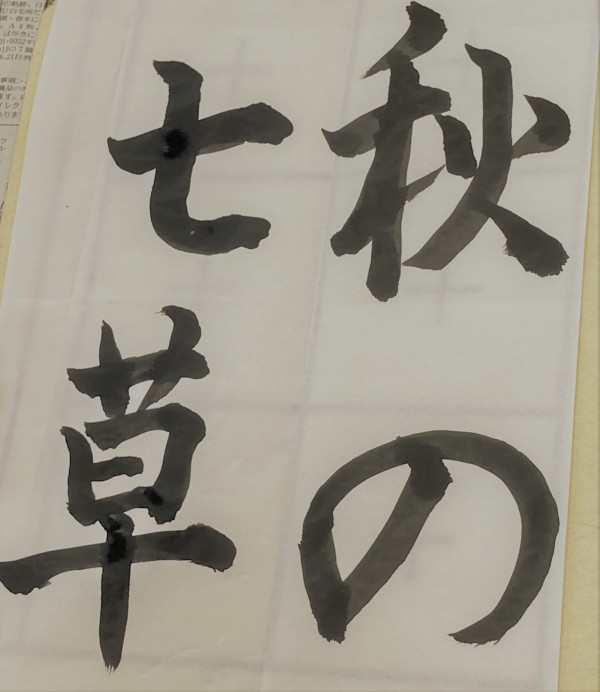 秋の
七草